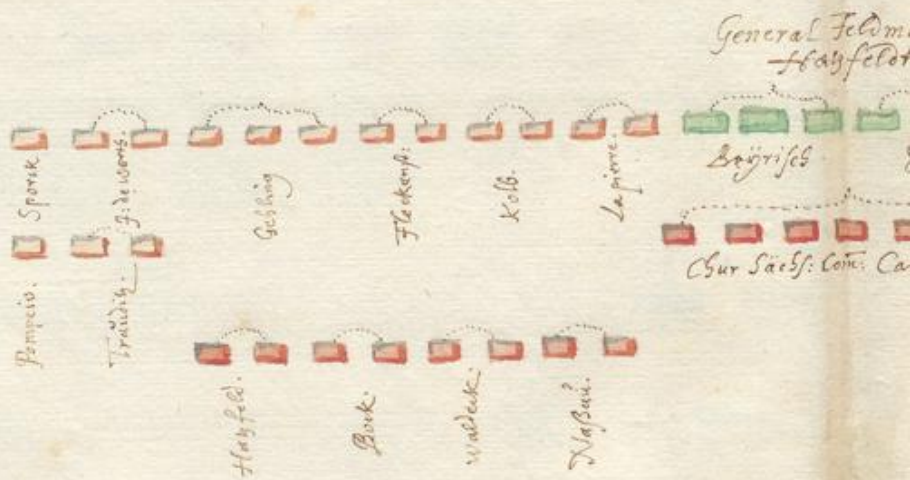 General Feldm
Hatzfeldt
Sporck
J: de werth.
Gehling
Fleckenst:
Kolb.
Lapierre.
Beÿrisch
Pompeio.
Traüditz
Chur Sächs: Com: Ca
Hatzfeld.
Bock.
Waldeck.
Naßau.